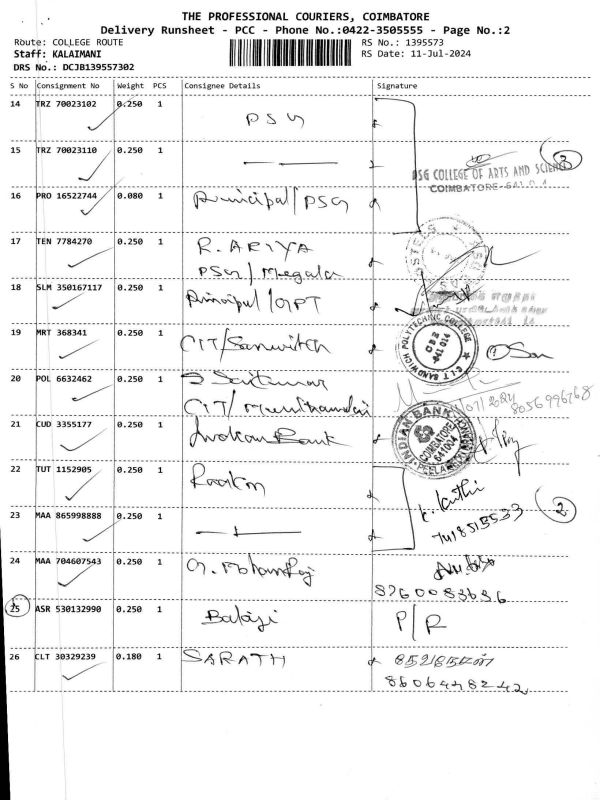 THE PROFESSIONAL COURIERS, COIMBATORE
Delivery Runsheet - PCC - Phone No.:0422-3505555 - Page No.:2
Route: COLLEGE ROUTE
RS No.: 1395573
Staff: KALAIMANI
RS Date: 11-Jul-2024
DRS No.: DCJB139557302
S No Consignment No Weight PCS Consignee Details Signature
14 TRZ 70023102 0.250 1 PSG
15 TRZ 70023110 0.250 1
PSG COLLEGE OF ARTS AND SCIENCE
COIMBATORE-641 014
16 PRO 16522744 0.080 1 Principal/PSG
17 TEN 7784270 0.250 1 R. ARIYA
PSG/Megala
18 SLM 350167117 0.250 1 Principal/GPT
19 MRT 368341 0.250 1 CIT/Sanwitch
C.I.T SANDWICH POLYTECHNIC COLLEGE
CBE
641 014
20 POL 6632462 0.250 1 S Saikumar
8056996768
21 CUD 3355177 0.250 1 Indian Bank
INDIAN BANK
COIMBATORE
641004
22 TUT 1152905 0.250 1
23 MAA 865998888 0.250 1
2
24 MAA 704607543 0.250 1 G. Mohanraj
8760083636
25 ASR 530132990 0.250 1 Balaji P/R
26 CLT 30329239 0.180 1 SARATH
8606448242